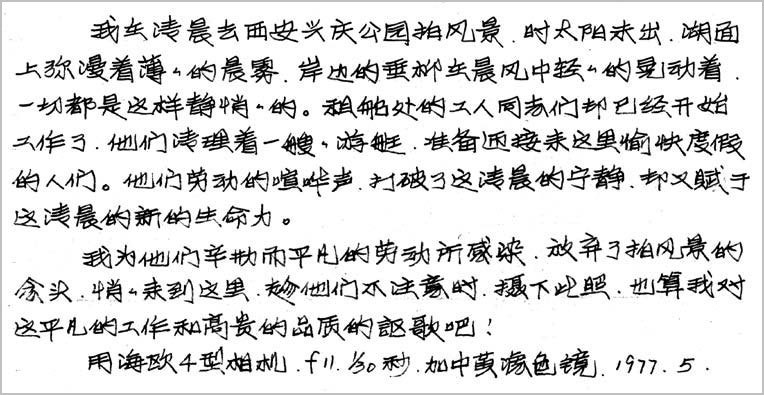 我在清晨去西安兴庆公园拍风景.时太阳未出.湖面
上弥漫着薄〃的晨雾.岸边的垂柳在晨风中轻〃的晃动着.
一切都是这样静悄〃的。租船处的工人同志们却已经开始
工作了.他们清理着一艘〃游艇.准备迎接来这里愉快度假
的人们。他们劳动的喧哗声.打破了这清晨的宁静.却又赋于
这清晨的新的生命力。
我为他们辛勤而平凡的劳动所感染.放弃了拍风景的
念头.悄〃来到这里.趁他们不注意时.摄下此照.也算我对
这平凡的工作和高贵的品质的讴歌吧!
用海欧4型相机.f11.1/30秒.加中黄滤色镜.1977.5.